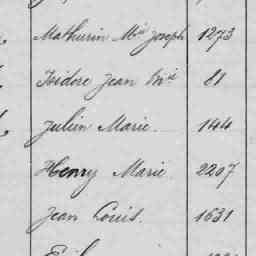 Mathurin Mie Joseph 1273
Isidore Jean Mie 81
Julien Marie. 144
Henry Marie 2207
Jean Louis. 1631